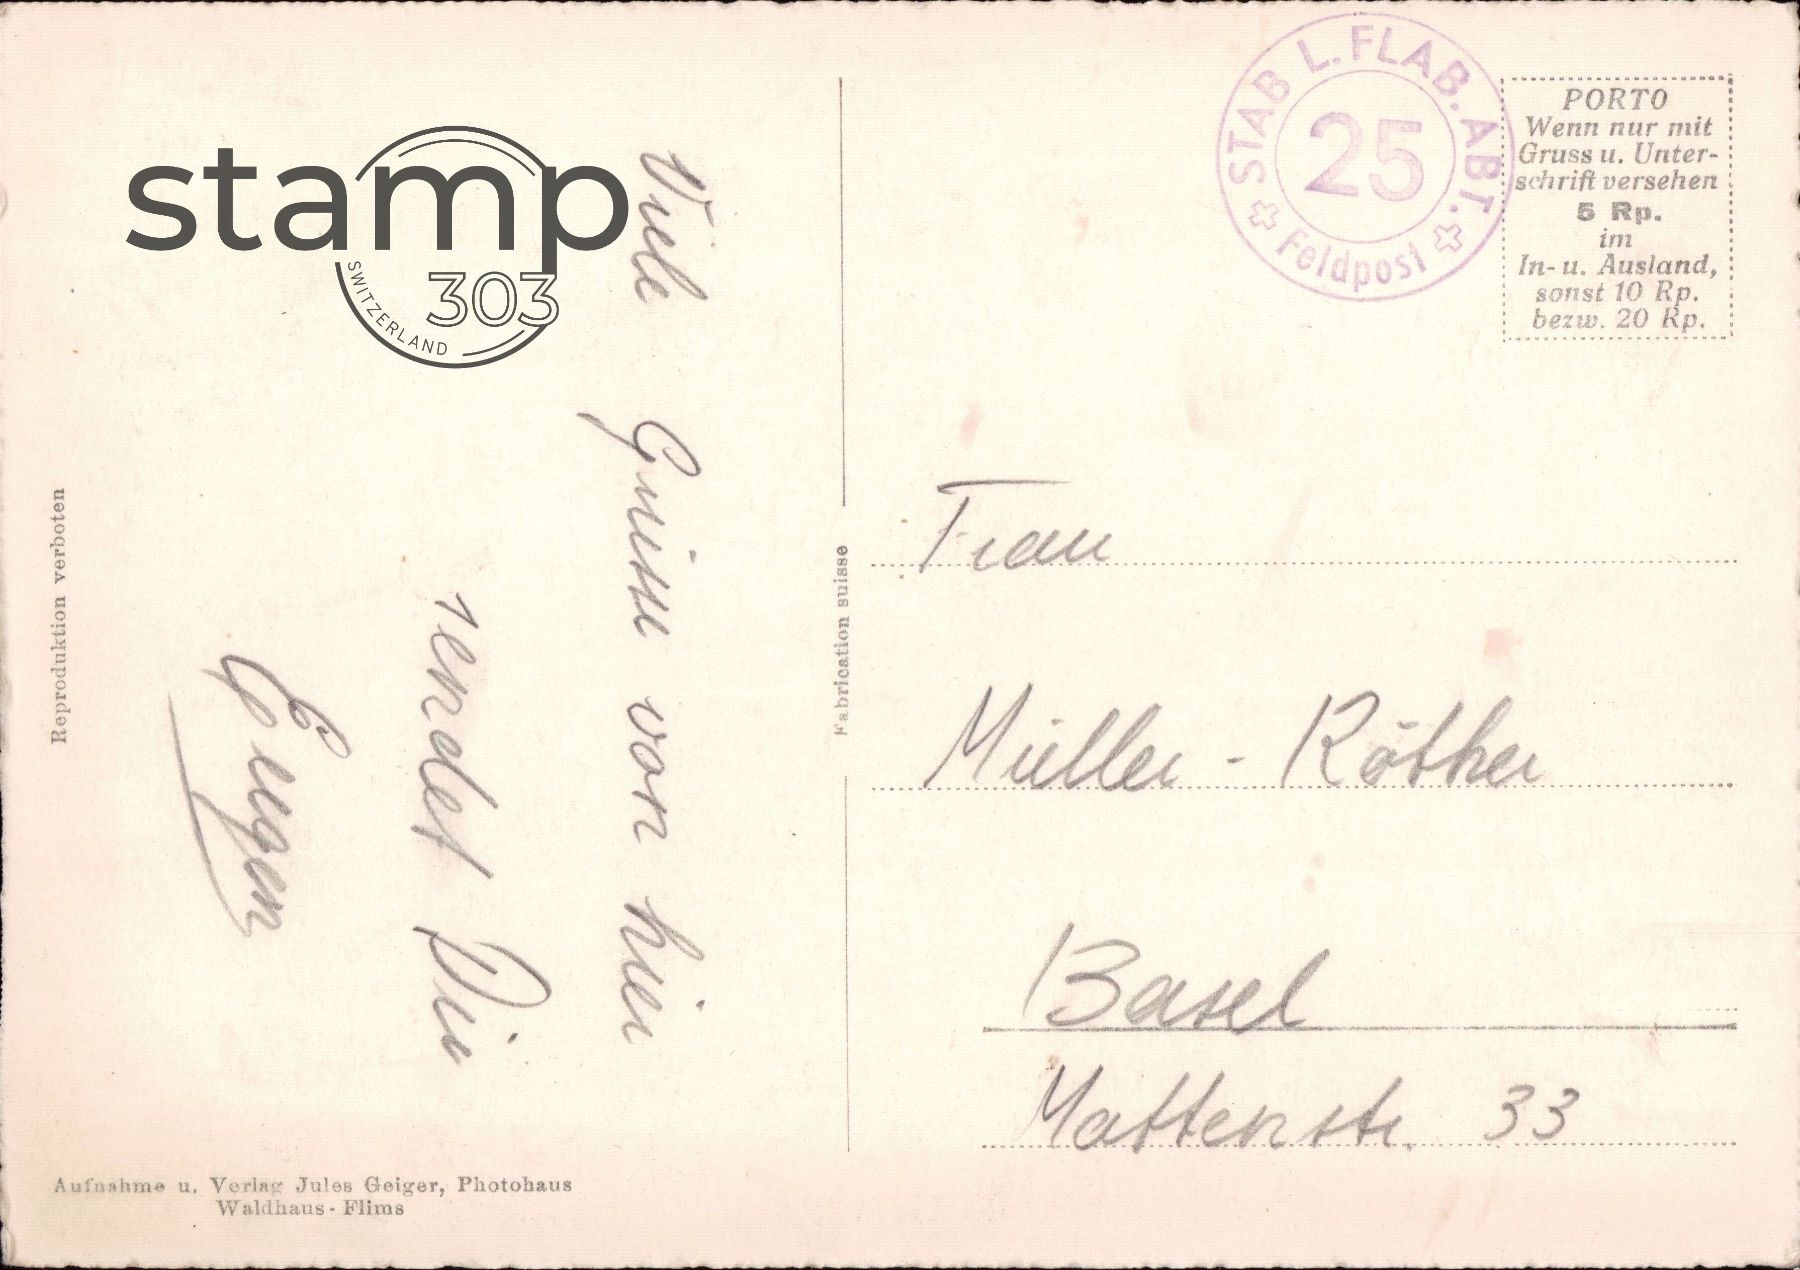 STAB L. FLAB. ABT.
25
Feldpost
PORTO
Wenn nur mit
Gruss u. Unter-
schrift versehen
5 Rp.
im
In- u. Ausland,
sonst 10 Rp.
bezw. 20 Rp.
stamp
303
SWITZERLAND
Viele Grüsse von hier
sendet Dir
Eugen
Reproduktion verboten
Fabrication suisse
Frau
Müller - Röther
Basel
Mattenstr. 33
Aufnahme u. Verlag Jules Geiger, Photohaus
Waldhaus - Flims